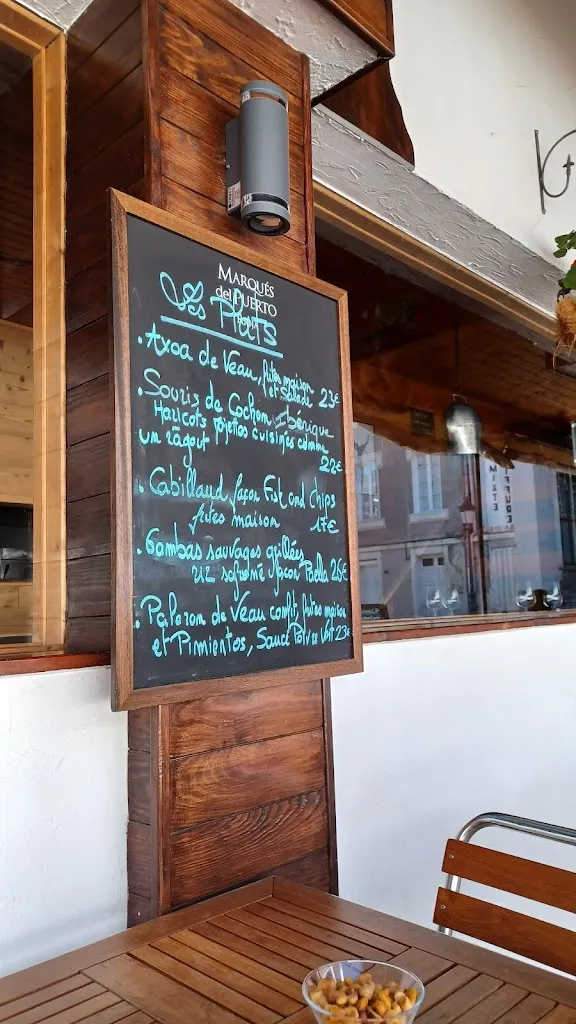 MARQUÉS
del PUERTO
Les Plats
. Axoa de Veau, frites maison
et Salade 23€
. Souris de Cochon Ibérique
Haricots pojettos cuisinés comme
un ragout 22€
. Cabillaud façon Fish and chips
frites maison 17€
. Gambas sauvages grillées,
riz safrané façon Paella 26€
. Paleron de Veau confit, frites maison
et Pimientos, Sauce Poivre Vert 23€
COIFFURE
MIXTE